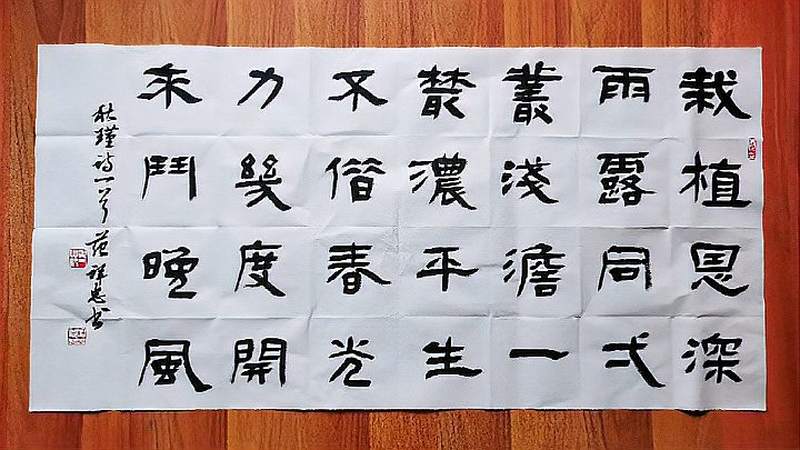 栽植恩深
雨露同弌
叢淺澹一
叢濃平生
不借春光
力幾度開
來鬥晚風
秋瑾诗一首 范祥忠书